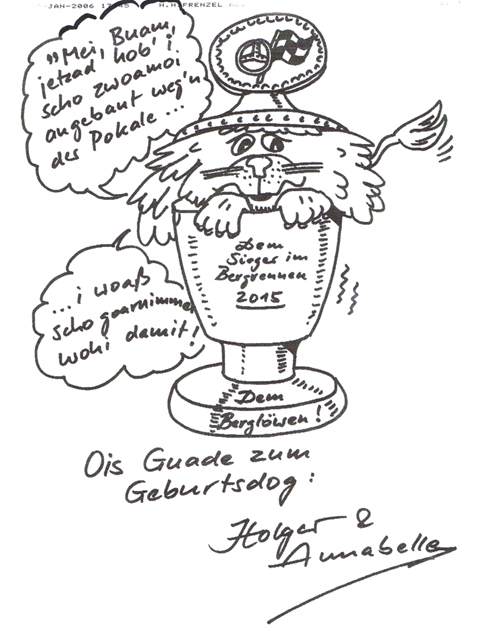 JAN-2006 17:45 H.H.FRENZEL
"Mei, Buam,
jetzad hob' i
scho zwoamoi
angebaut weg'n
des Pokale...
Dem
Sieger im
Bergrennen
2015
...i woaß
scho gaarnimmer
wohi damit!
Dem
Berglöwen!
Ois Guade zum
Geburtsdog:
Holger &
Annabelle